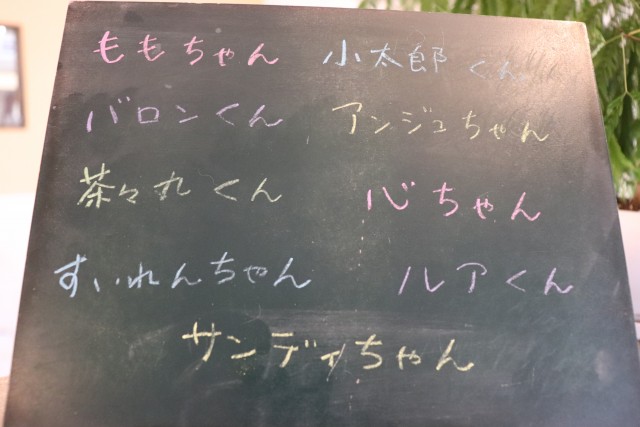 ももちゃん 小太郎くん
バロンくん アンジュちゃん
茶々丸くん 心ちゃん
すいれんちゃん ルアくん
サンディちゃん